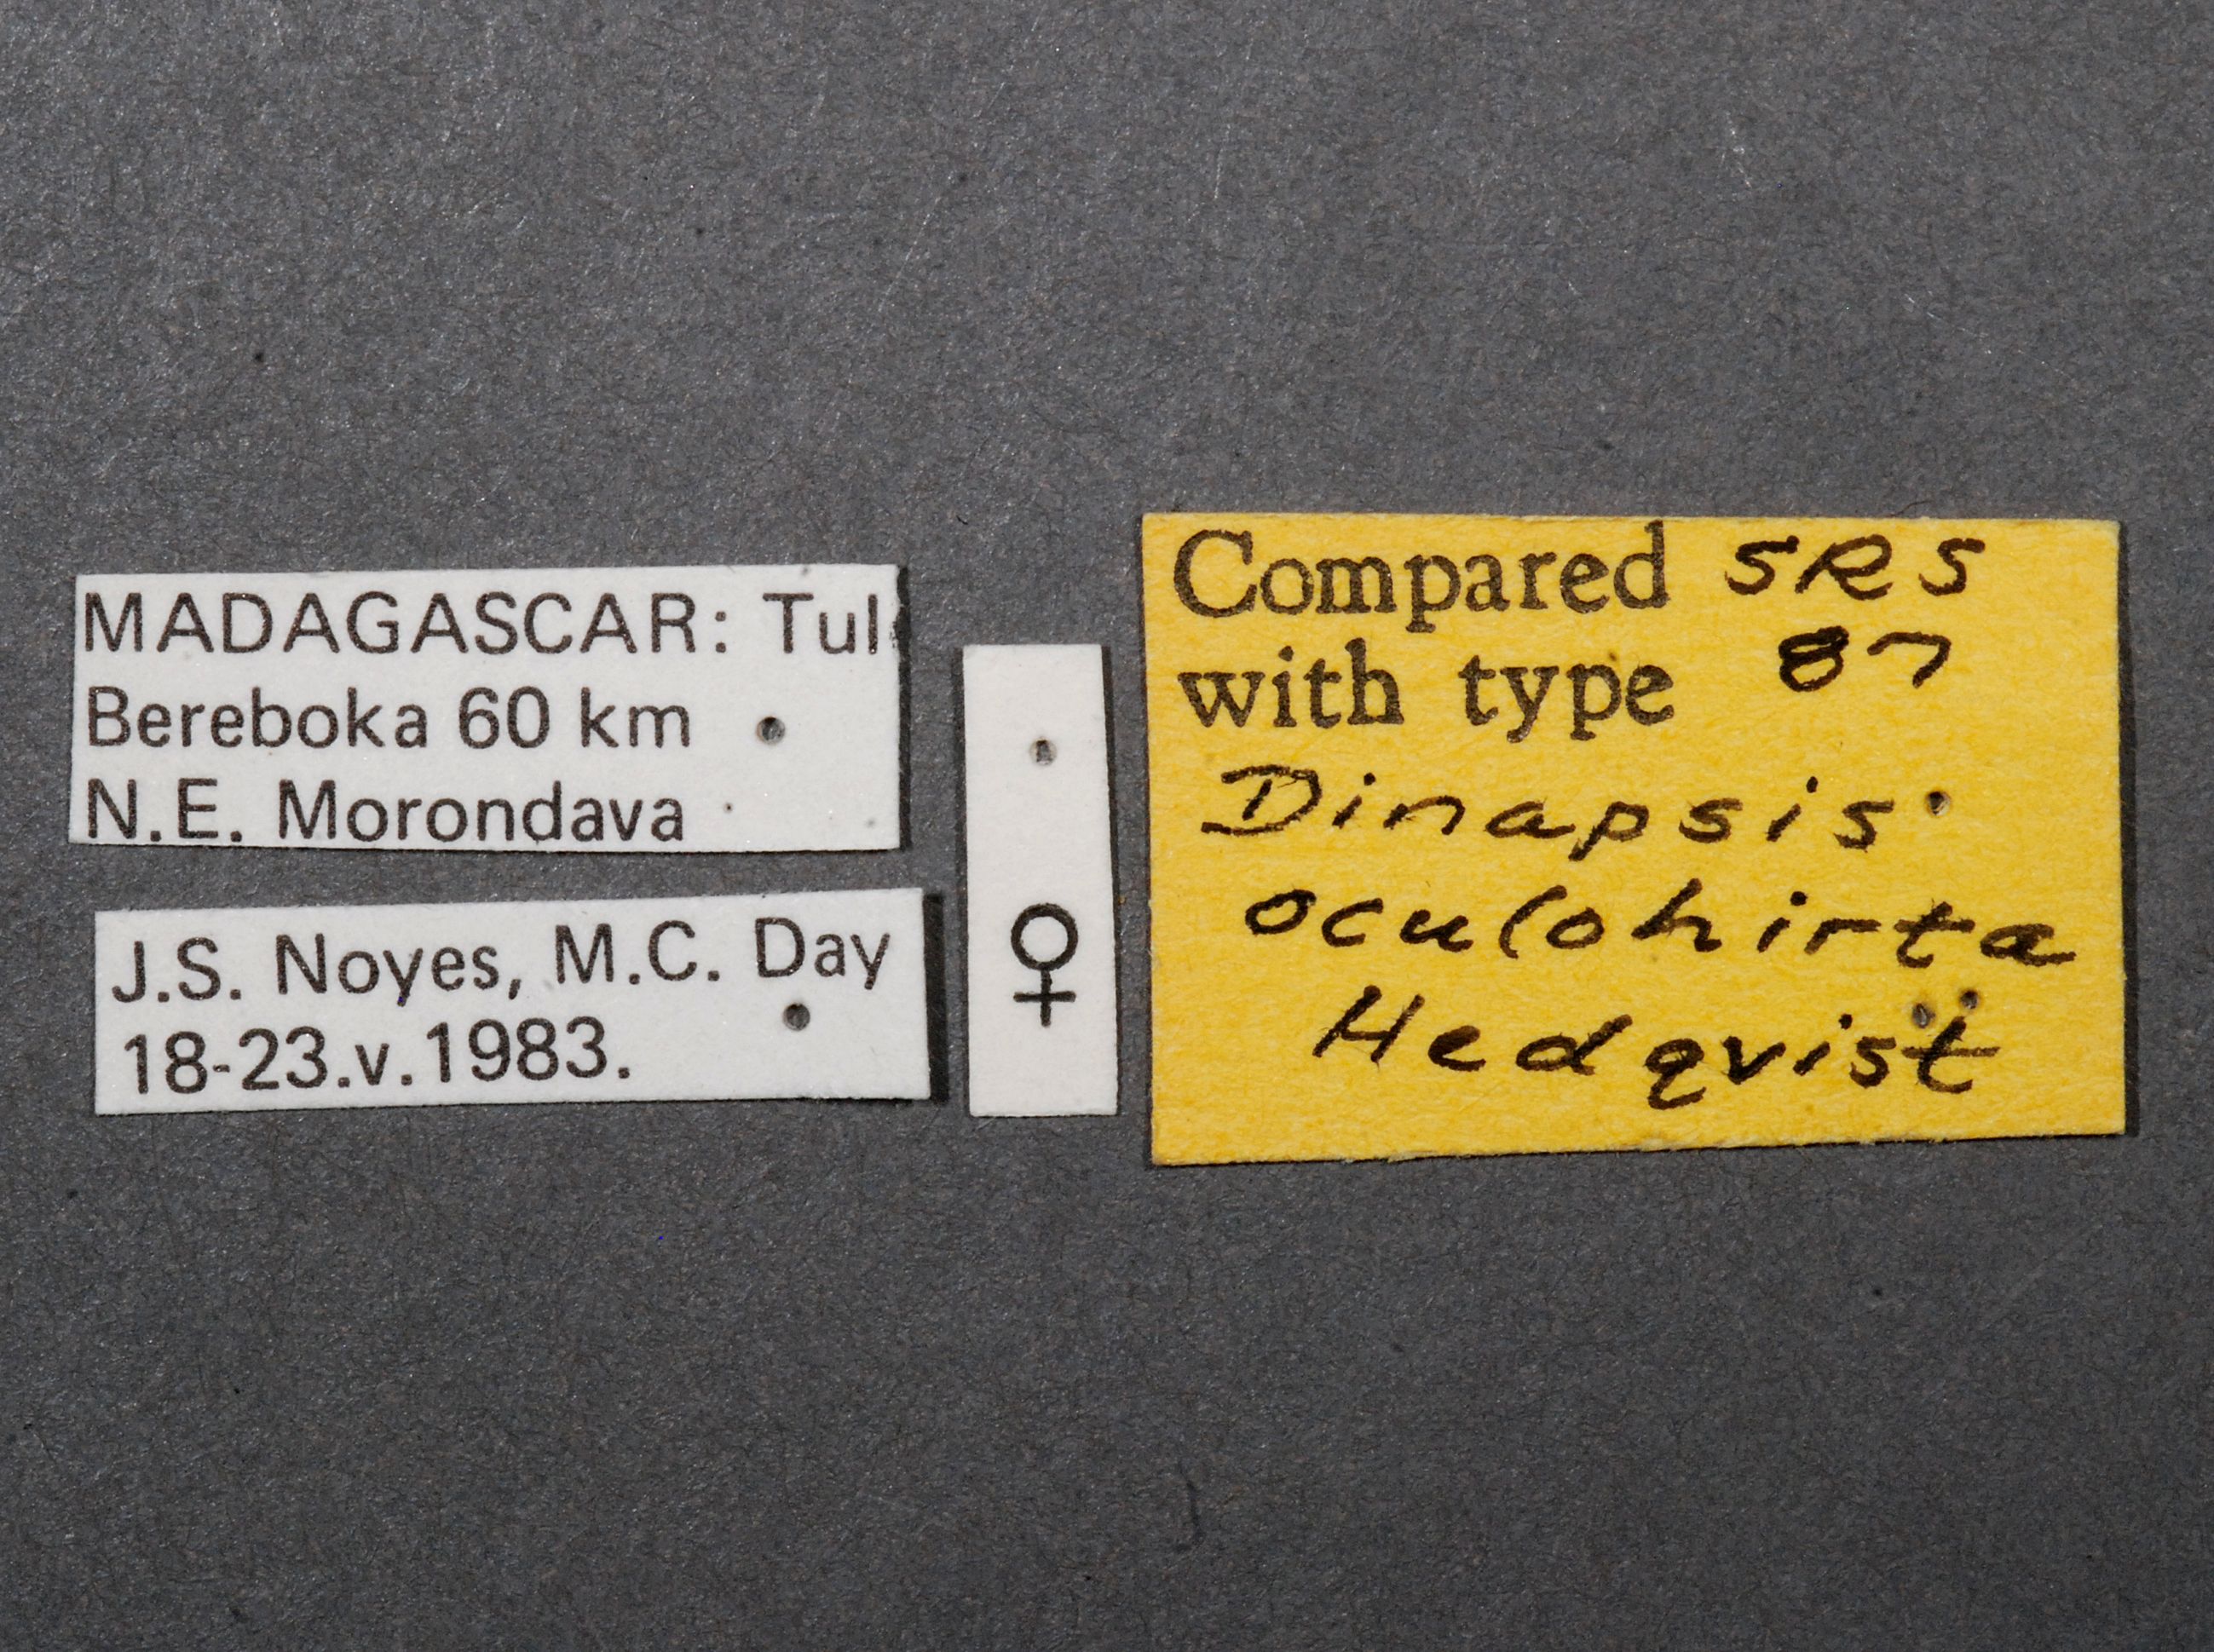 MADAGASCAR: Tul
Bereboka 60 km
N.E. Morondava
J.S. Noyes, M.C. Day
18-23.v.1983.
♀
Compared SRS
with type 87
Dinapsis
oculohirta
Hedqvist